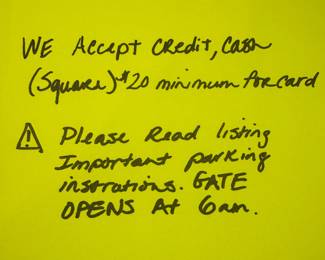 WE Accept Credit, Cash
(Square) $20 minimum for card
⚠ Please Read listing
Important parking
instorations. GATE
OPENS At 6am.